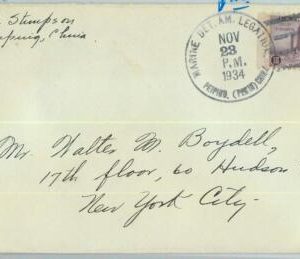 Stimpson
Peiping, China
MARINE DET. AM. LEGATION
NOV
23
P.M.
1934
PEIPING, (PEKIN) CHINA
Mr. Walter M. Boydell,
17th floor, 60 Hudson
New York City-